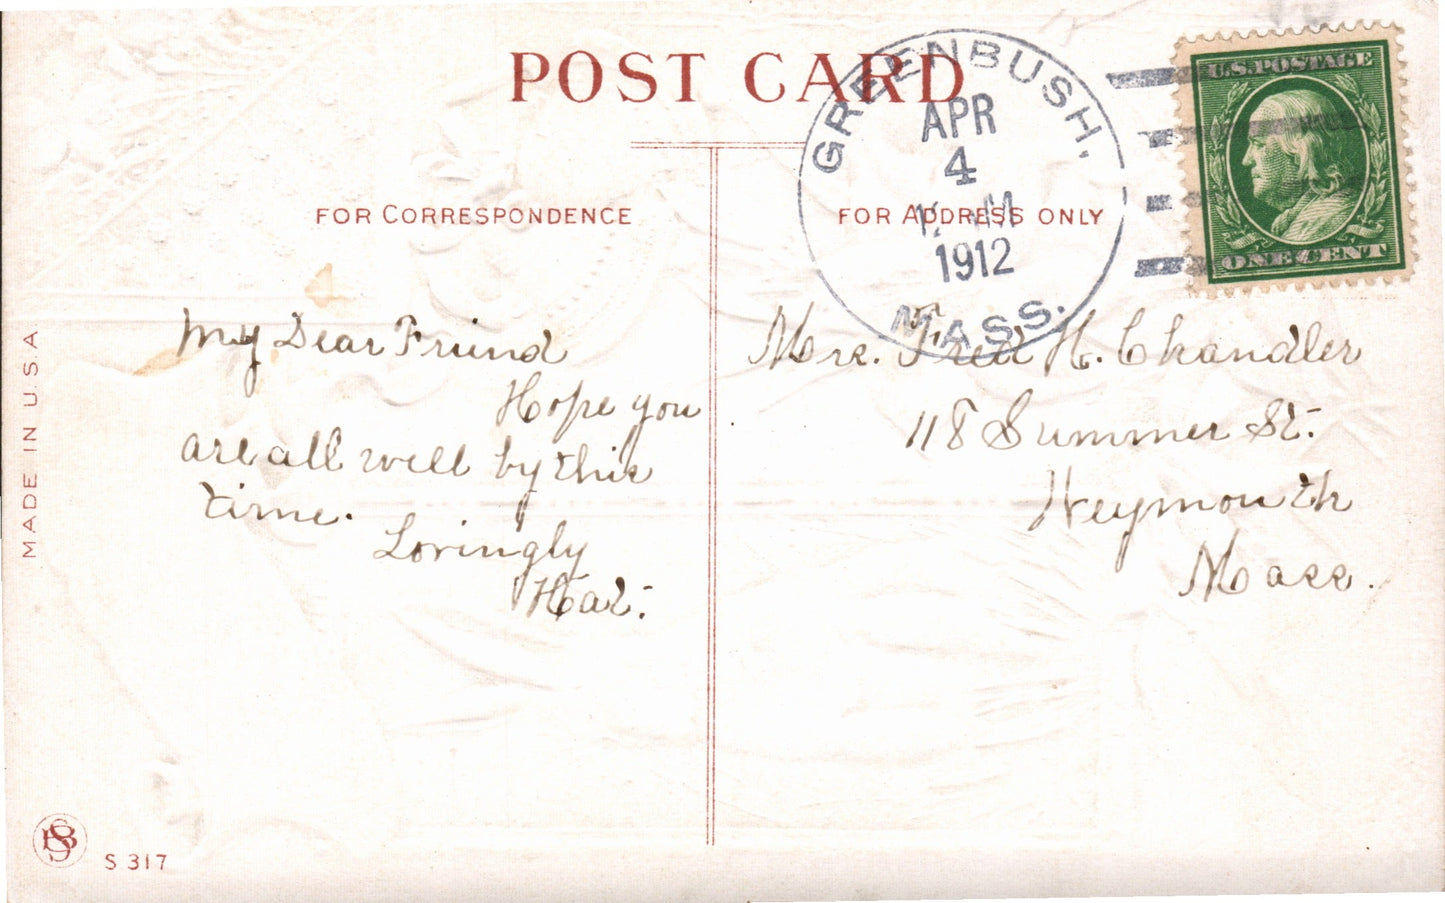 POST CARD
GREENBUSH,
APR
4
M
1912
MASS.
U.S. POSTAGE
ONE CENT
FOR CORRESPONDENCE
FOR ADDRESS ONLY
My Dear Friend
Hope you
are all well by this
time.
Lovingly
Hat.
Mrs. Fred H. Chandler
118 Summer St.
Weymouth
Mass.
MADE IN U.S.A
S 317